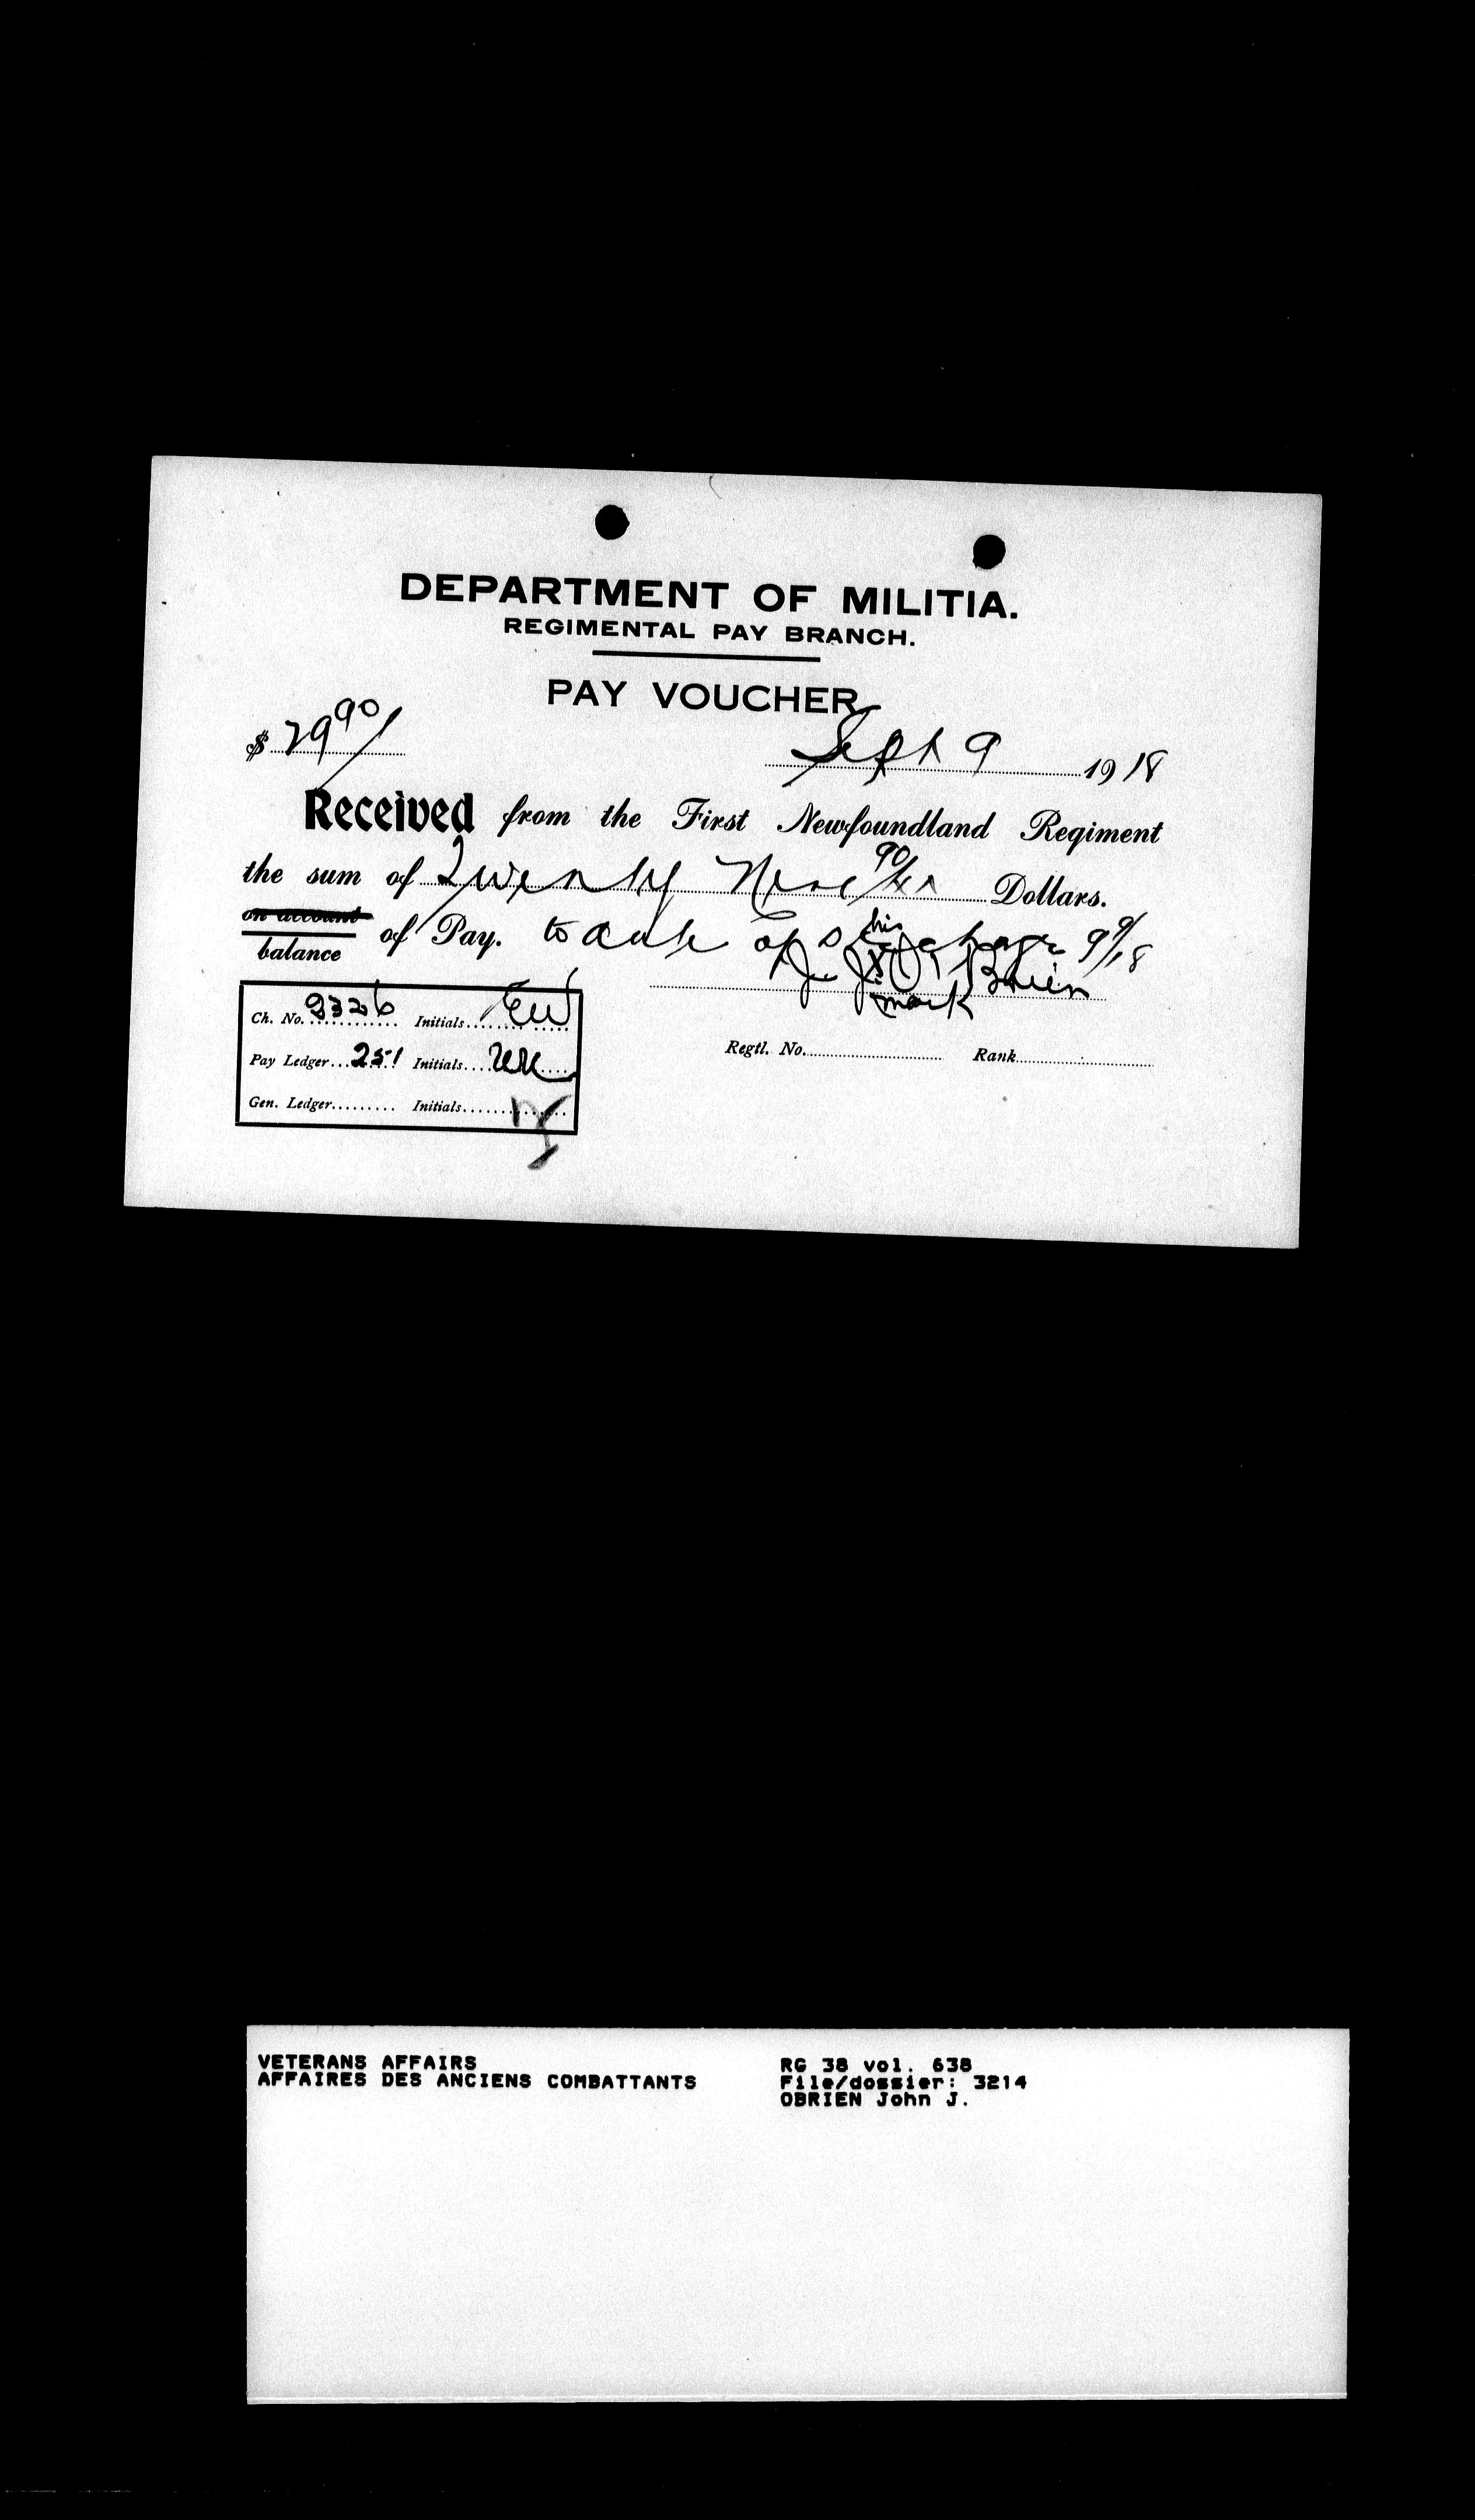 DEPARTMENT OF MILITIA.
REGIMENTAL PAY BRANCH.
PAY VOUCHER
$ 29 90/
Sept 9 1918
Received from the First Newfoundland Regiment
the sum of Twenty Nine 90/xx Dollars.
on account
balance
of Pay. to date of discharge 9/9/18
his
J. J. X O'Brien
mark
Ch. No. 2326 Initials EW
Pay Ledger 251 Initials
Gen. Ledger Initials
Regtl. No. Rank
VETERANS AFFAIRS
AFFAIRES DES ANCIENS COMBATTANTS
RG 38 vol. 638
File/dossier: 3214
OBRIEN John J.